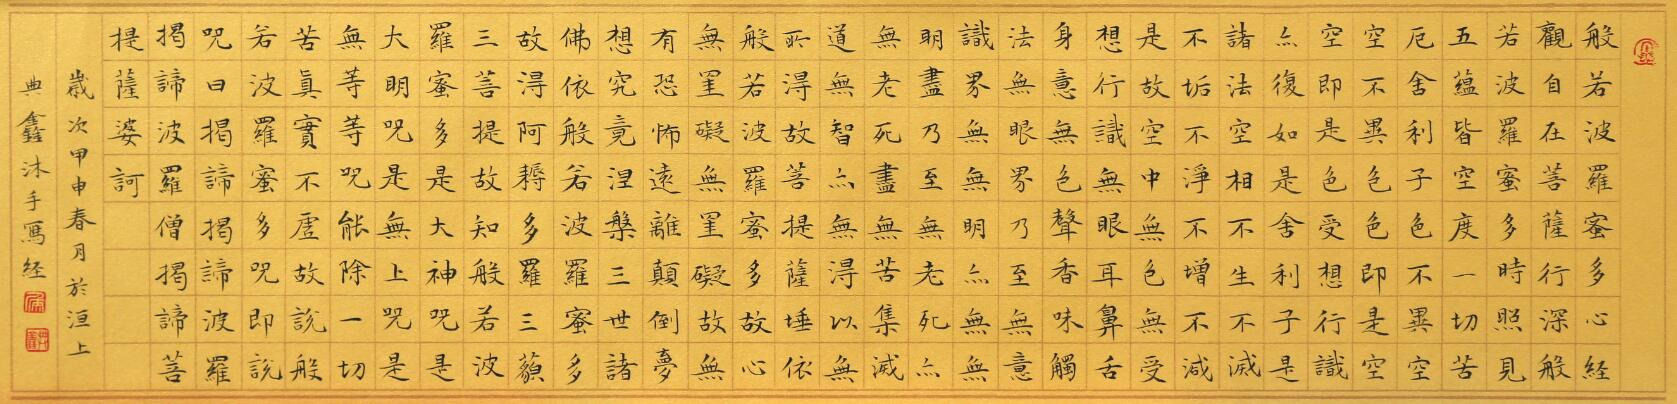 般若波羅蜜多心経
觀自在菩薩行深般
若波羅蜜多時照見
五蘊皆空度一切苦
厄舍利子色不異空
空不異色色即是空
空即是色受想行識
亦復如是舍利子是
諸法空相不生不滅
不垢不淨不增不減
是故空中無色無受
想行識無眼耳鼻舌
身意無色聲香味觸
法無眼界乃至無意
識界無無明亦無無
明盡乃至無老死亦
無老死盡無苦集滅
道無智亦無得以無
所得故菩提薩埵依
般若波羅蜜多故心
無罣礙無罣礙故無
有恐怖遠離顛倒夢
想究竟涅槃三世諸
佛依般若波羅蜜多
故得阿耨多羅三藐
三菩提故知般若波
羅蜜多是大神咒是
大明咒是無上咒是
無等等咒能除一切
苦真實不虛故說般
若波羅蜜多咒即說
咒曰揭諦揭諦波羅
揭諦波羅僧揭諦菩
提薩婆訶
歲次甲申春月於洹上
典鑫沐手寫経